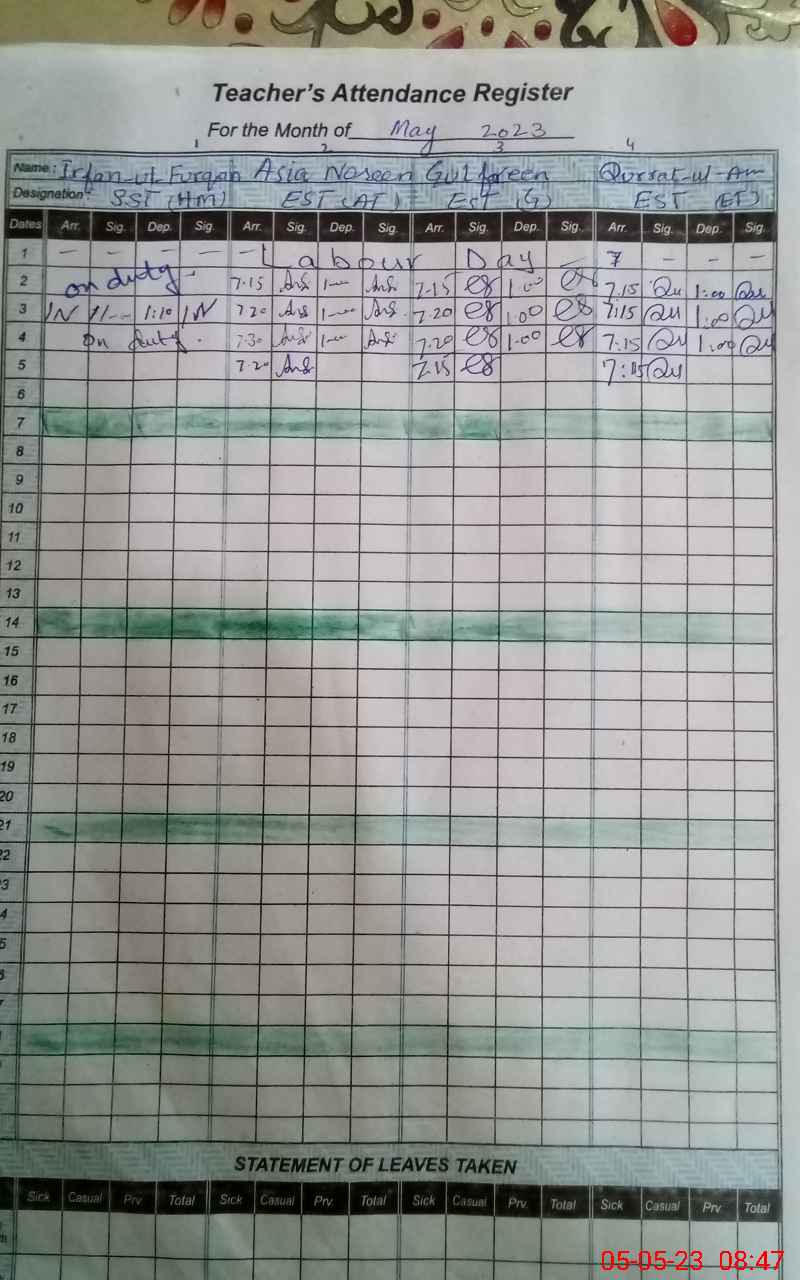 Teacher's Attendance Register
For the Month of May 2023
1 2 3 4
Name: Irfan-ul-Furqan Asia Noreen Gulfreen Qurrat-ul-Ain
Designation: SST (Hm) EST (AT) Est (G) EST (ET)
Dates Arr. Sig. Dep. Sig. Arr. Sig. Dep. Sig. Arr. Sig. Dep. Sig. Arr. Sig. Dep. Sig.
1 - - - - - Labour Day - - - -
2 on duty - 7.15 1-00 7.15 1.00 7.15 Qu 1:00 Qu
3 11-- 1:10 7.20 1-00 7.20 1.00 7:15 Qu 1:00 Qu
4 On duty. 7.30 1-00 7.20 1.00 7.15 Qu 1:00 Qu
5 7.20 7.15 7:15 Qu
6
7
8
9
10
11
12
13
14
15
16
17
18
19
20
21
22
3
4
5
STATEMENT OF LEAVES TAKEN
Sick Casual Prv Total Sick Casual Prv. Total Sick Casual Prv. Total Sick Casual Prv. Total
05-05-23 08:47